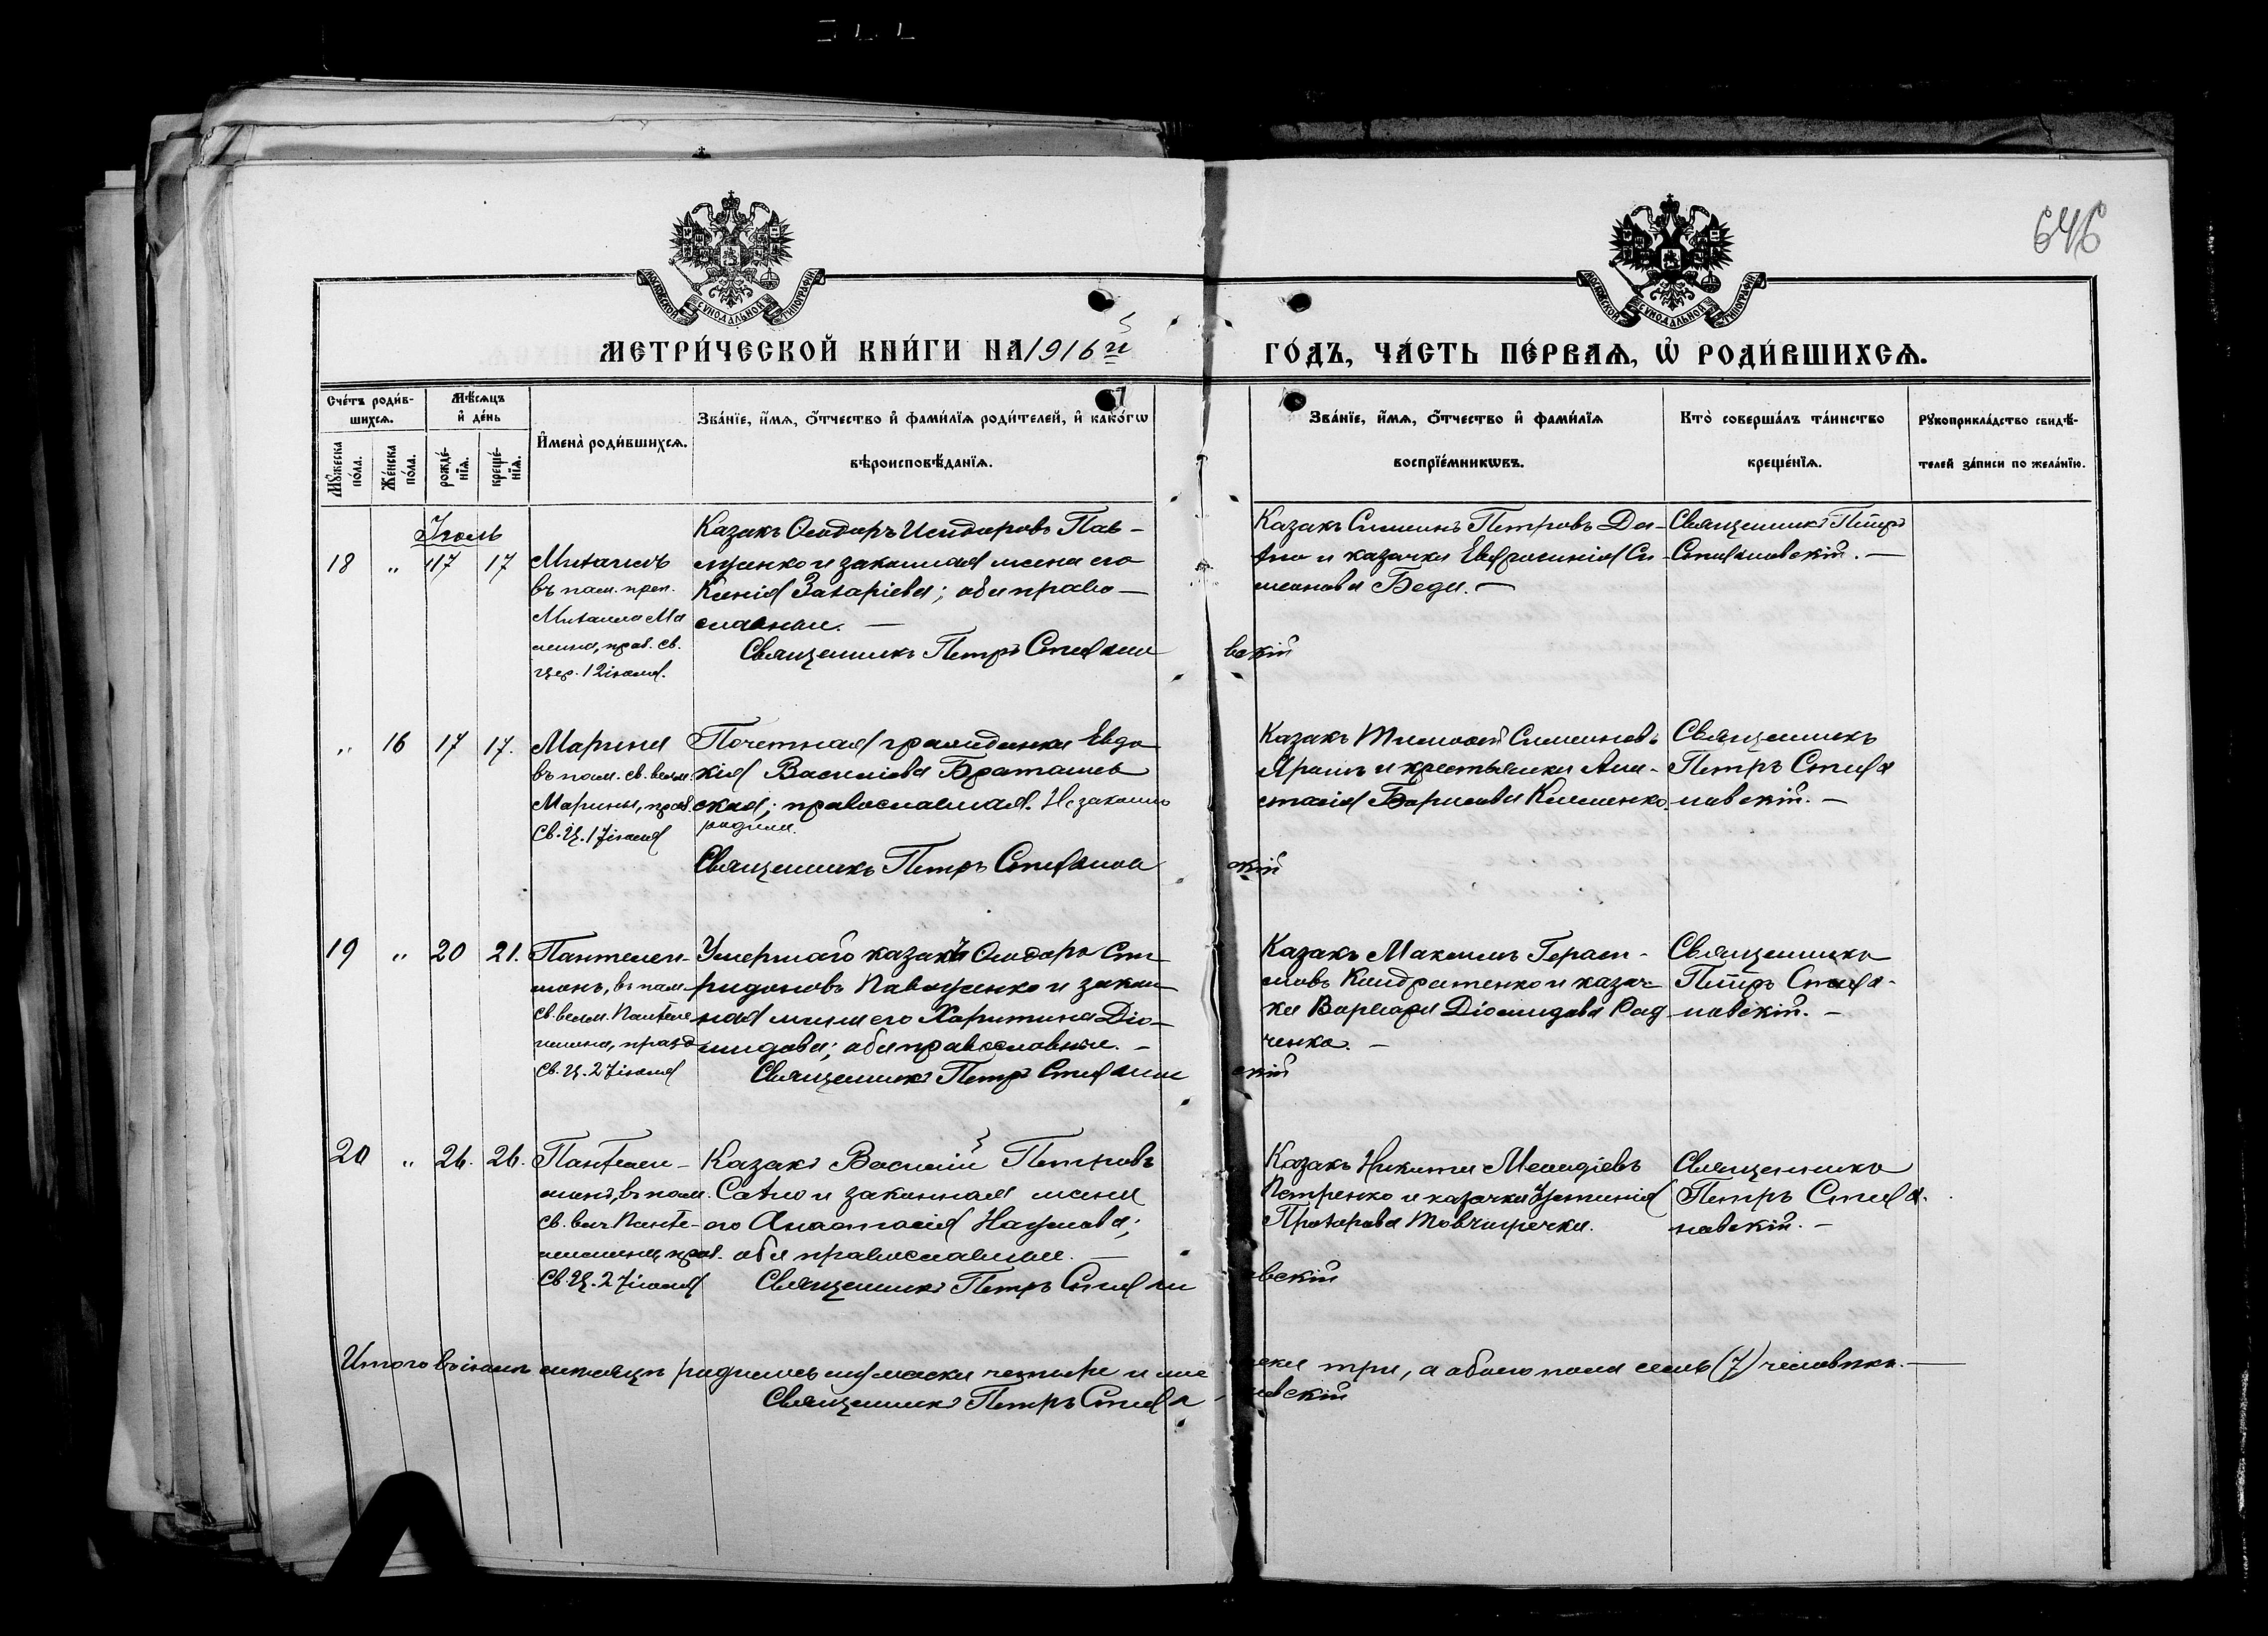 646
МОСКОВСКОЙ СѴНОДАЛЬНОЙ ТИПОГРАФІИ
МОСКОВСКОЙ СѴНОДАЛЬНОЙ ТИПОГРАФІИ
МЕТРИ́ЧЕСКОЙ КНИ́ГИ НА 1916й ГО́ДЪ, ЧА́СТЬ ПЕ́РВАѦ, Ѡ҆ РОДИ́ВШИХСѦ.
Сче́тъ роди́вшихсѧ.
Мꙋ́жеска по́ла.
Же́нска по́ла.
Мѣ́сѧцъ и҆ де́нь
рожде́нїѧ.
креще́нїѧ.
И҆мена̀ роди́вшихсѧ.
Зва́нїе, и҆́мѧ, ѻ҆́тчество и҆ фами́лїѧ роди́телей, и҆ како́гѡ
вѣроисповѣ́данїѧ.
Зва́нїе, и҆́мѧ, ѻ҆́тчество и҆ фами́лїѧ
воспрїе́мникѡвъ.
Кто̀ соверша́лъ та́инство
креще́нїѧ.
Рꙋкоприкла́дство свидѣ́-
телей за́писи по жела́нїю.
Іюль
18 " 17 17
Михаилъ
въ пам. преп.
Михаила Ма
леина, праз. св.
цер. 12 іюля.
Казакъ Ѳеодоръ Исидоровъ Пав-
луенко и законная жена его
Ксенія Захаріева; оба право-
славные. —
Священникъ Петръ Стефановскій
Казакъ Симеонъ Петровъ
и казачка Евфросинія Си-
меонова Беда. —
Священникъ Петръ
Стефановскій. —
" 16 17 17.
Марина
въ пам. св. велм.
Марины, праз.
Св. Ц. 17 іюля
Почетная гражданка Евдо
кія Василіева Браташев
ская; православная. Незаконно
родила.
Священникъ Петръ Стефановскій
Казакъ Тимоѳей Симеоновъ
Ярошъ и крестьянка Ана-
стасія Борисова Клименко
Священникъ
Петръ Стефа
новскій. —
19 " 20 21.
Пантелеи-
монъ, въ пам.
св. велм. Пантеле
имона, празд.
Св. Ц. 27 іюля
Умершаго казака Ѳеодора Спи-
ридоновъ Павлуенко и закон-
ная жена его Харитина Діо-
мидова; оба православные. —
Священникъ Петръ Стефановскій
Казакъ Максимъ Гераси-
мовъ Кондратенко и казач-
ка Варвара Діомидова Рад
ченко. —
Священникъ
Петръ Стефа-
новскій. —
20 " 26. 26.
Пантелеи-
монъ, въ пам.
св. велм. Панте-
леимона, праз.
Св. Ц. 27 іюля
Казакъ Василій Петровъ
Сахно и законная жена
его Анастасія Наумова;
оба православные. —
Священникъ Петръ Стефановскій
Казакъ Никита Меѳодіевъ
Петренко и казачка Устинія
Прохорова Товчигречка.
Священникъ
Петръ Стефа-
новскій. —
Итого въ іюлѣ мѣсяцѣ родилось мужеска четыре и женска три, а обоего пола семь (7) человѣкъ. —
Священникъ Петръ Стефановскій